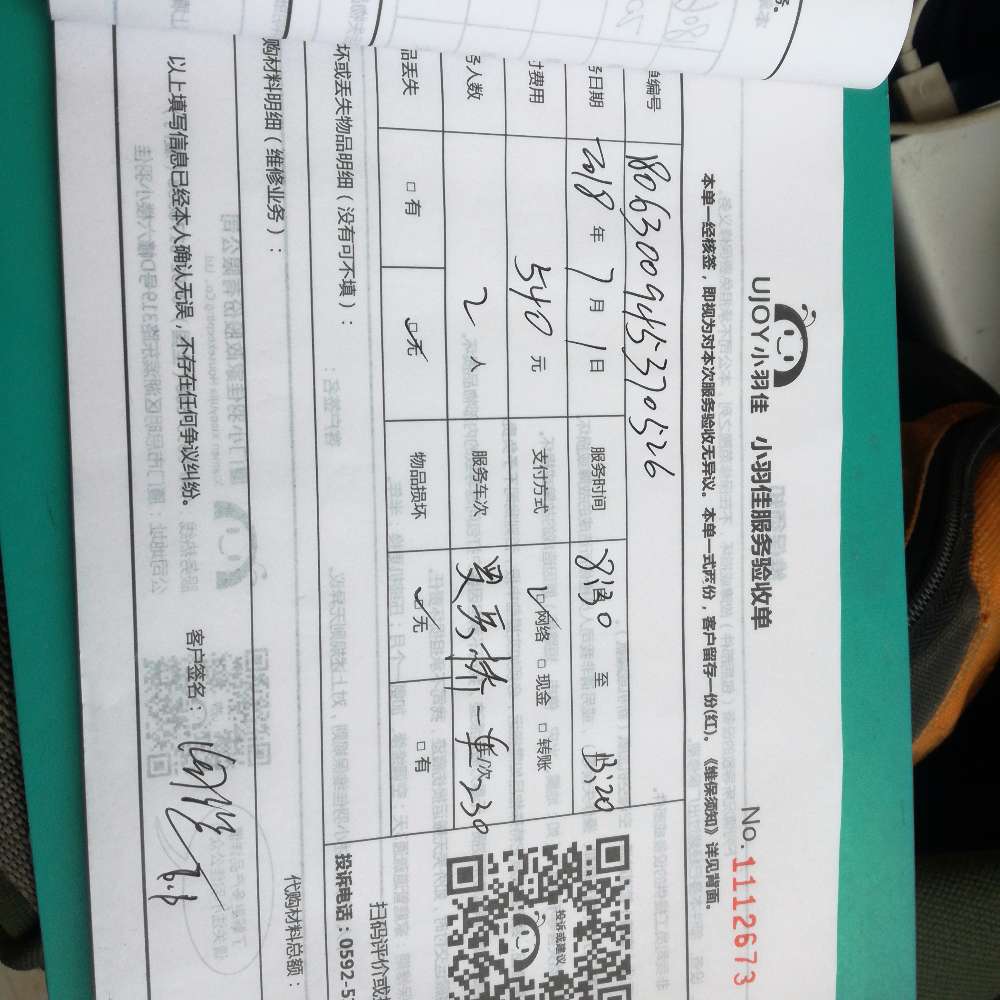 UJOY小羽佳 小羽佳服务验收单
No.1112673
本单一经核签，即视为对本次服务验收无异议。本单一式两份，客户留存一份(红)。《维保须知》详见背面。
编号 1806300945370526
日期 2018 年 7 月 1 日 服务时间 8:30 至
付费用 540 元 支付方式 ☑网络 □现金 □转账
人数 2 人 服务车次 一车/次230
品丢失 □有 ☑无 物品损坏 ☑无 □有
投诉或建议
扫码评价或
投诉电话：0592-5
坏或丢失物品明细（没有可不填）：
购材料明细（维修业务）：
代购材料总额：
以上填写信息已经本人确认无误，不存在任何争议纠纷。 客户签名：